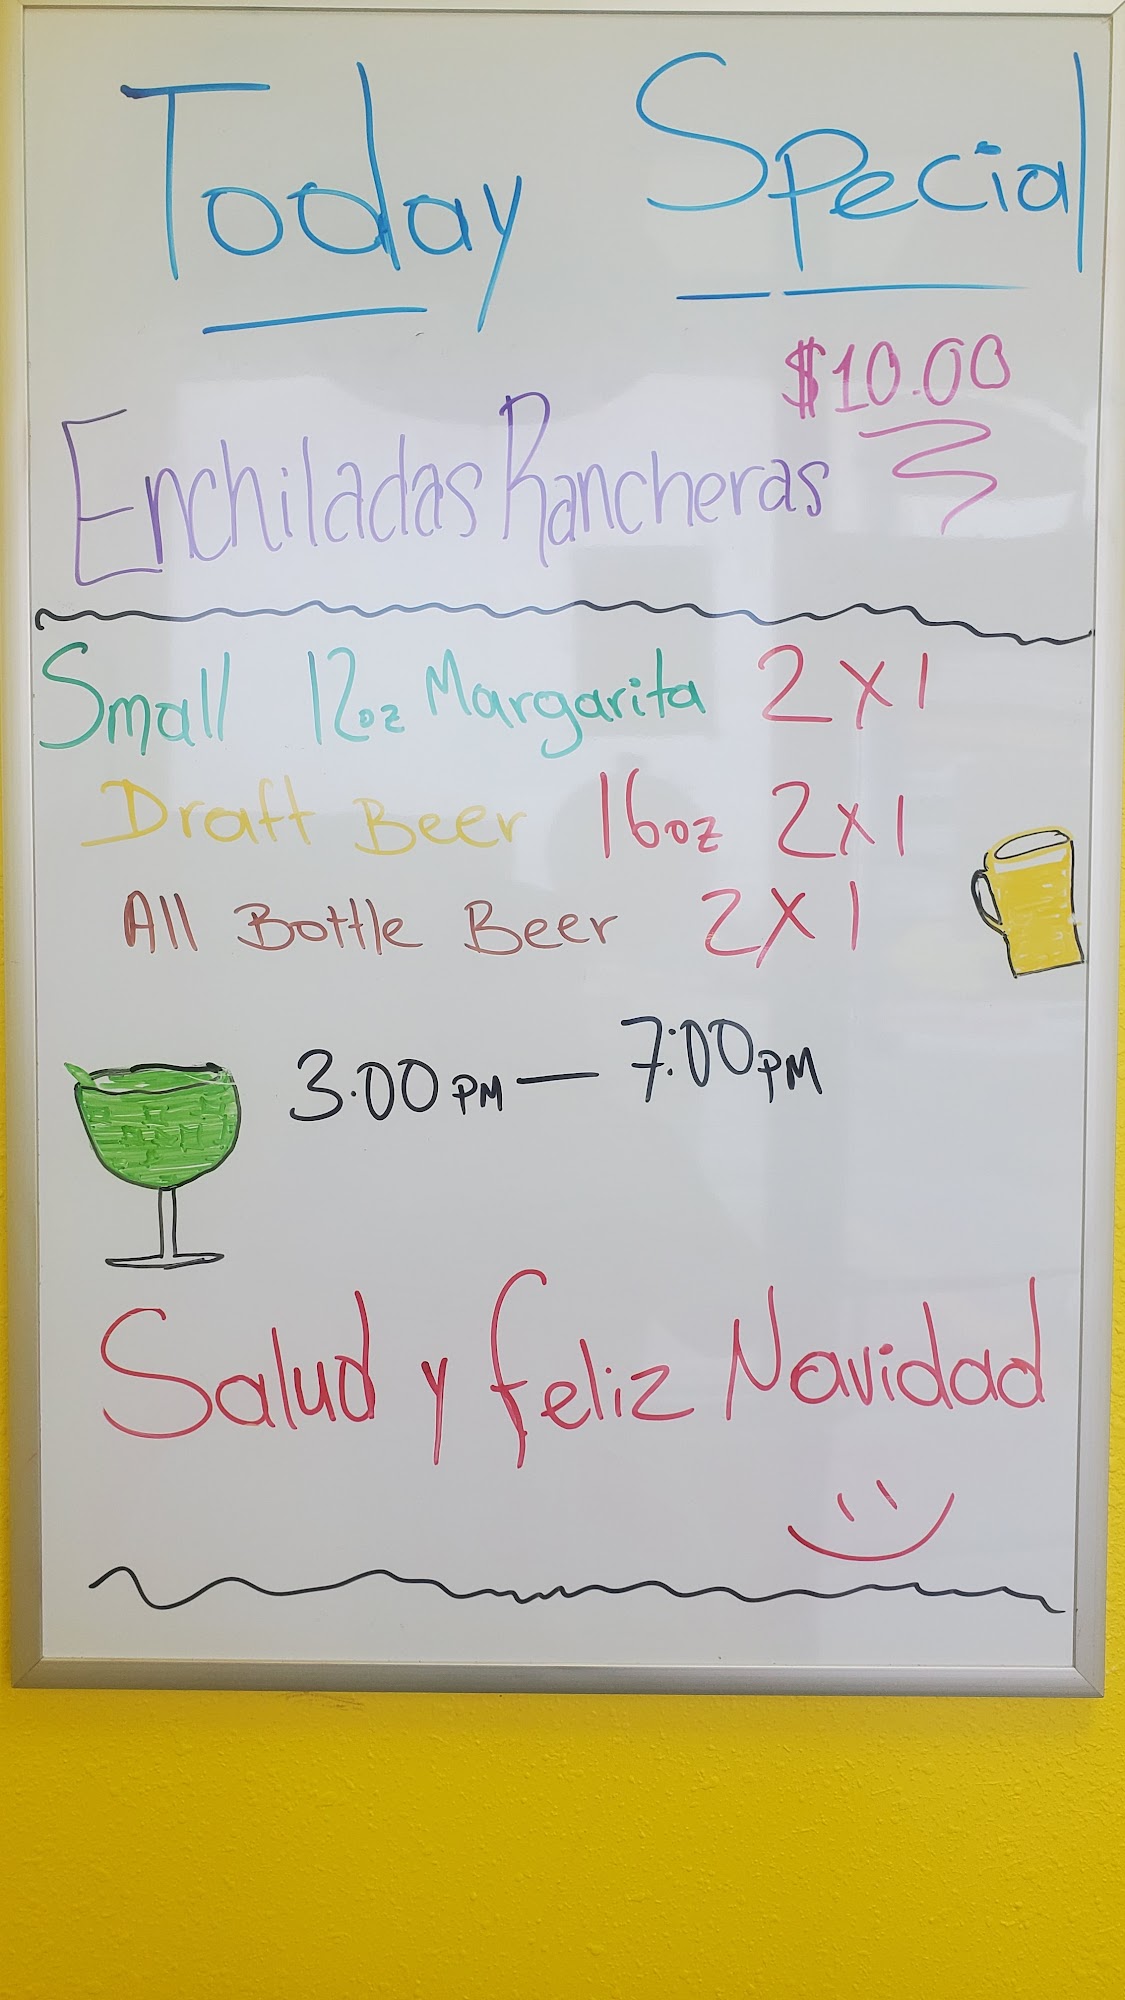 Today Special
$10.00
Enchiladas Rancheras
Small 12oz Margarita 2x1
Draft Beer 16oz 2x1
All Bottle Beer 2x1
3:00 PM — 7:00 PM
Salud y feliz Navidad